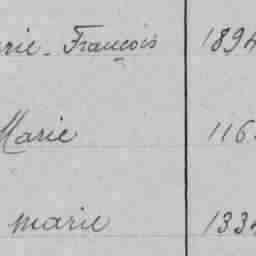 rie - François 1894
Marie 116
marie 133